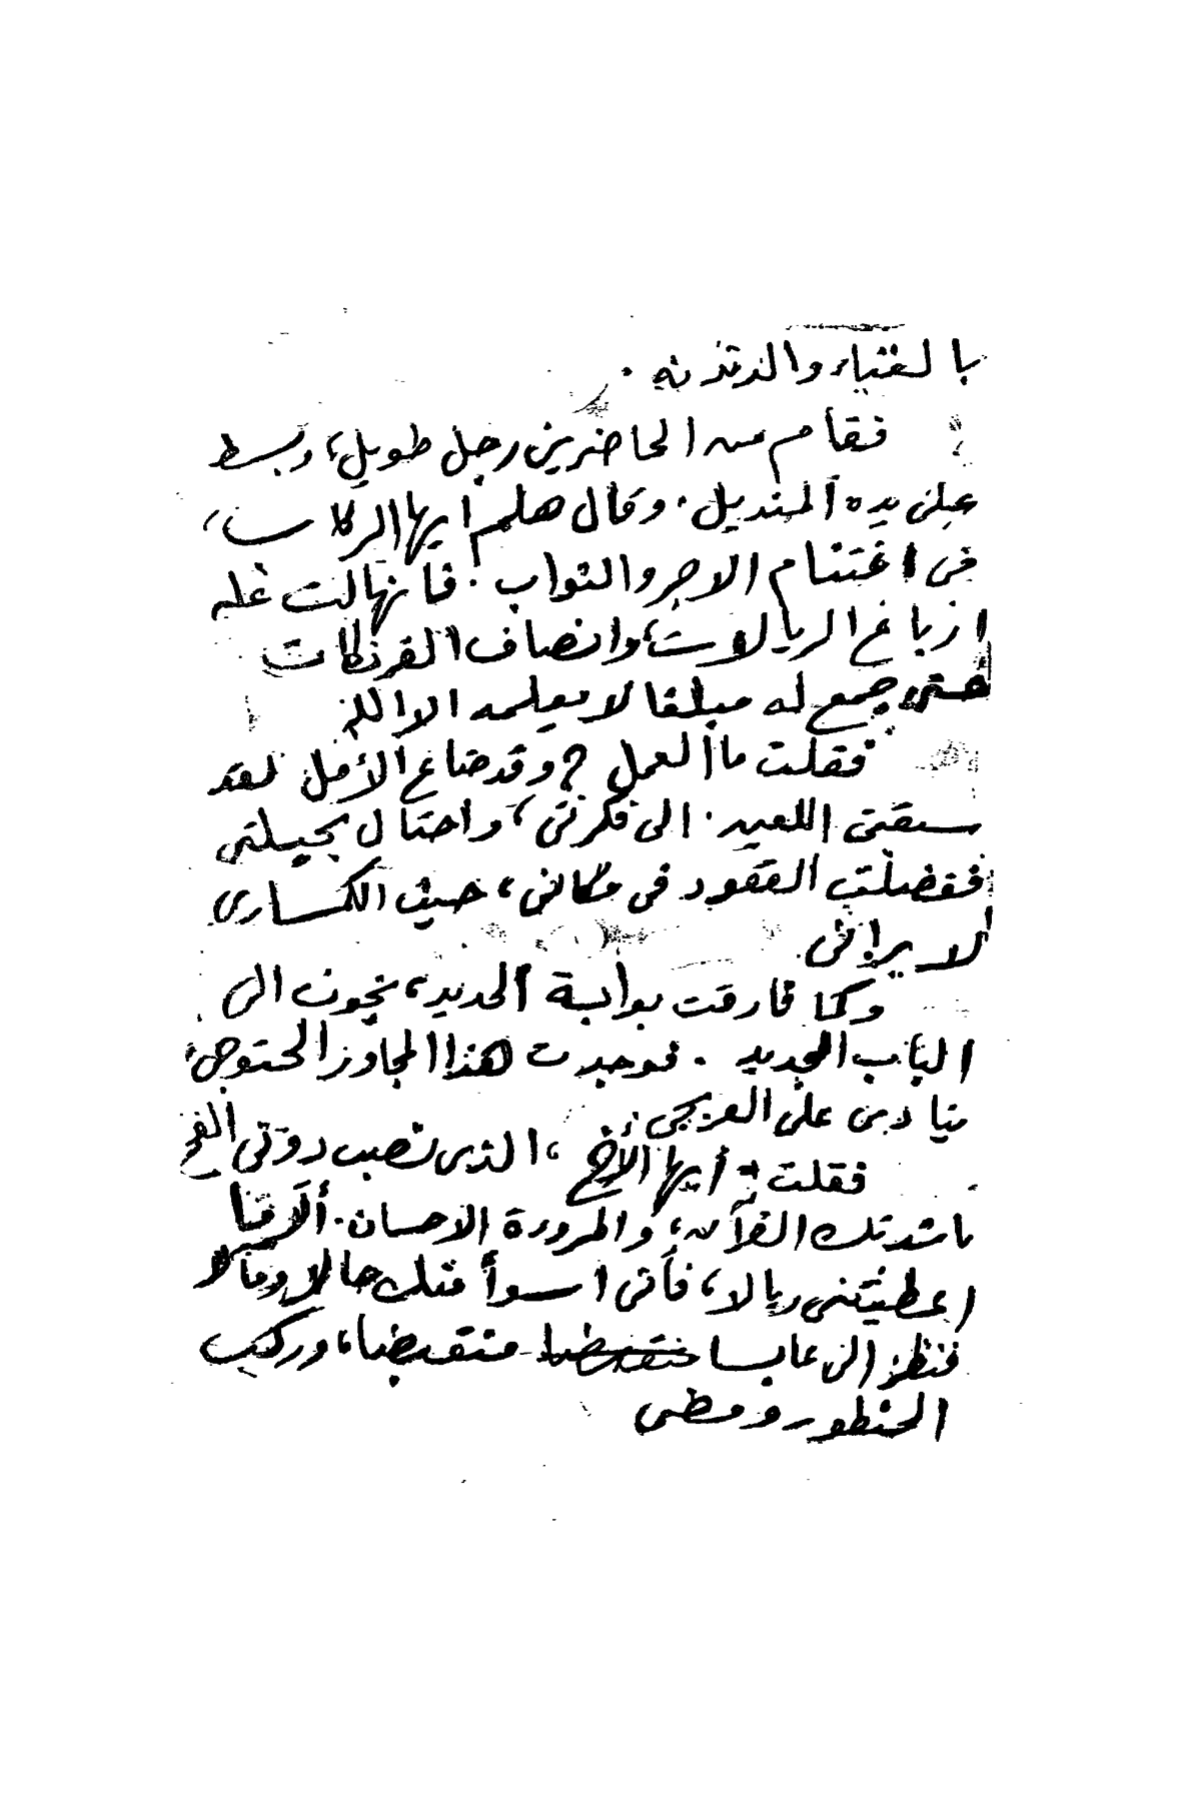 بالغناء والدندنه .
فقام من الحاضرين رجل طويل، وبسط
على يده المنديل . وقال هلم ايها الركاب،
فى اغتنام الاجر والثواب . فانهالت عليه
ارباع الريالات، وانصاف الفرنكات
حتى جمع له مبلغا لا يعلمه الا الله
فقلت ما العمل ؟ وقد ضاع الأمل لقد
سبقنى اللعين . الى فكرتى، واحتال بحيلتى
ففضلت القعود فى مكانى، حيث الكمسارى
لا يرانى
وكما فارقت بوابة الحديد، نجوت الى
الباب الجديد . فوجدت هذا المجاور
ينادى على العربجى
فقلت : أيها الأخ، الذى نصب دوتى الفخ
ناشدتك القرآن، والمروءة الاحسان . ألا
اعطيتنى ريالا، فأنى اسوأ منك حالا ومآلا
فنظر الى عابسا منقبضا، وركب
الحنطور ومضى